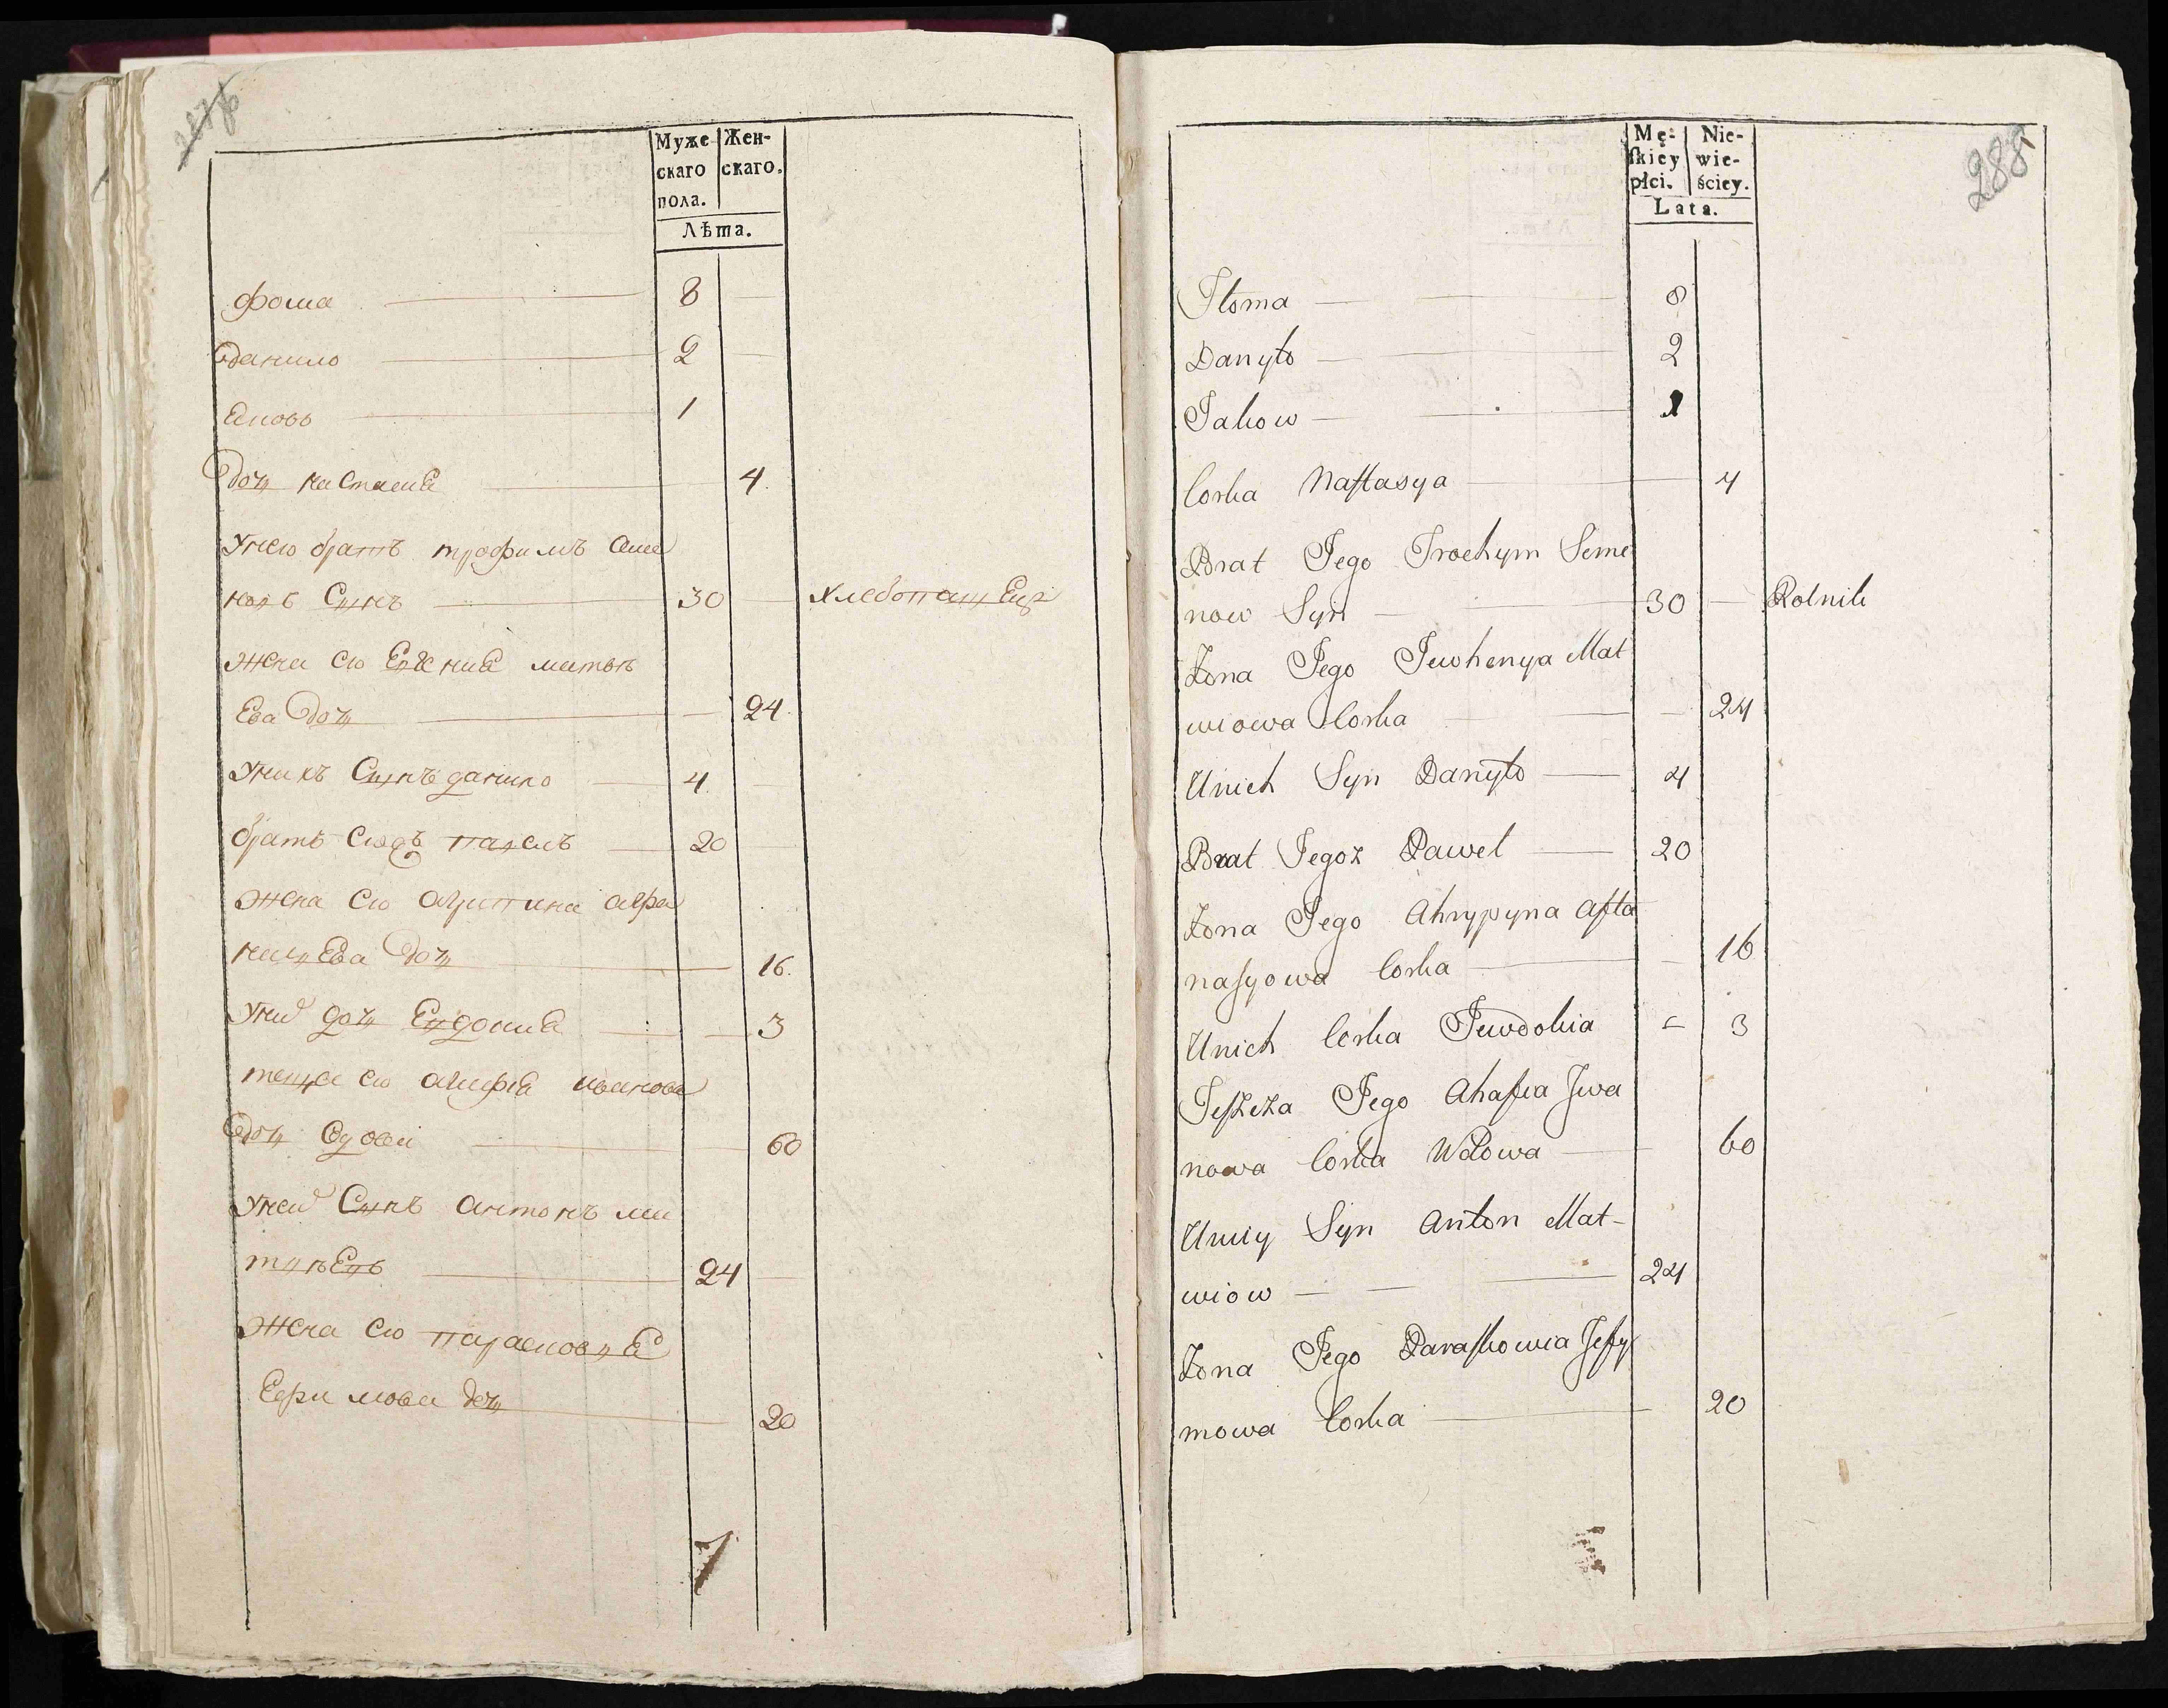 Муже Жен-
скаго скаго.
пола.
Лѣта.
фома 8
Данило 2
Яковъ 1
Дочь настасия 4.
Унего братъ трофимъ Семе
новъ Сынъ 30 хлебопашец
жена его Евгения матве
Ева Дочь 24.
Унихъ Сынъ данило 4.
братъ егожъ павелъ 20
жена его агрипина афа
насьЕва Дочь 16.
Уних дочь Евдокия 3
теща его агафия иванова
Дочь вдова 60
Уней Сынъ антонъ ма
твѣЕвъ 24
жена его парасковья
Ефимова дочь 20
288
Mę- Nie-
ſkiey wie-
płci. ściey.
Lata.
Ftoma 8
Danyło 2
Jakow 1
Corka Naſtasya 4
Brat Jego Trochym Seme
now Syn 30 Rolnik
Żona Jego Jewhenya Mat
wiowa Corka 24
Unich Syn Danyło 4
Brat Jegoż Paweł 20
Żona Jego Ahrypyna Afta
naſyowa Corka 16
Unich Corka Jewdokia 3
Teſzcza Jego Ahafia Jwa
nowa Corka Wdowa 60
Uniey Syn Anton Mat-
wiow 24
Żona Jego Paraſkowia Jefy
mowa Corka 20